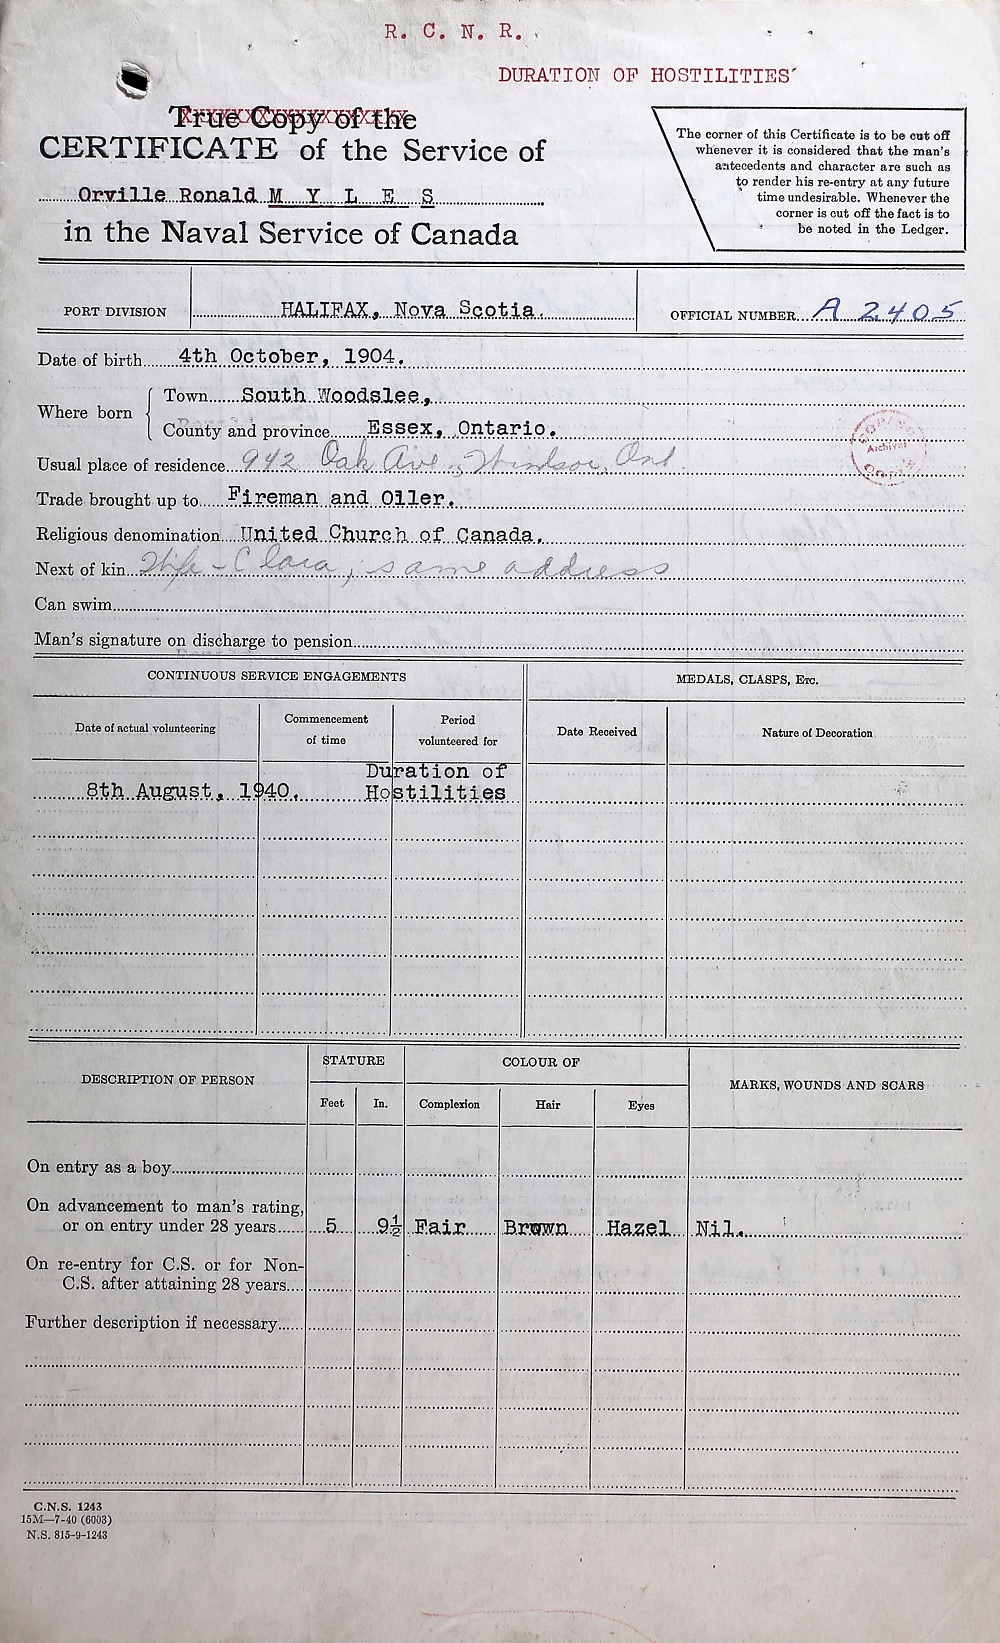 R. C. N. R.
DURATION OF HOSTILITIES
True Copy of the
CERTIFICATE of the Service of
Orville Ronald M Y L E S
in the Naval Service of Canada
The corner of this Certificate is to be cut off
whenever it is considered that the man's
antecedents and character are such as
to render his re-entry at any future
time undesirable. Whenever the
corner is cut off the fact is to
be noted in the Ledger.
PORT DIVISION HALIFAX, Nova Scotia. OFFICIAL NUMBER A 2405
Date of birth 4th October, 1904.
Where born
Town South Woodslee,
County and province Essex, Ontario.
Archives
Usual place of residence 942 Oak Ave., Windsor, Ont.
Trade brought up to Fireman and Oiler.
Religious denomination United Church of Canada.
Next of kin Wife - Clara, same address
Can swim
Man's signature on discharge to pension
CONTINUOUS SERVICE ENGAGEMENTS MEDALS, CLASPS, Etc.
Date of actual volunteering Commencement of time Period volunteered for Date Received Nature of Decoration
8th August, 1940. Duration of Hostilities
DESCRIPTION OF PERSON STATURE COLOUR OF MARKS, WOUNDS AND SCARS
Feet In. Complexion Hair Eyes
On entry as a boy
On advancement to man's rating,
or on entry under 28 years 5 9½ Fair Brown Hazel Nil.
On re-entry for C.S. or for Non-
C.S. after attaining 28 years
Further description if necessary
C.N.S. 1243
15M—7-40 (6003)
N.S. 815-9-1243